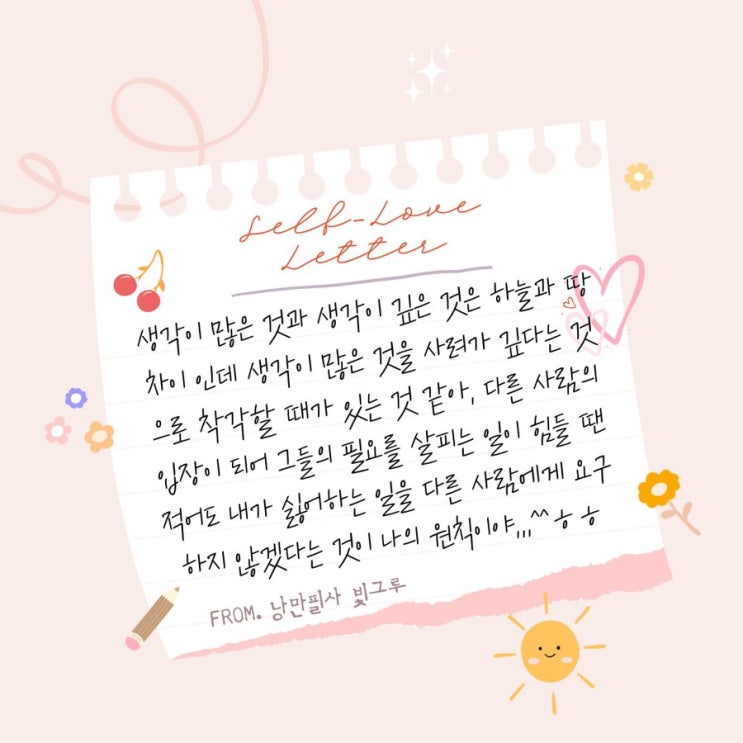 Self-Love
Letter
생각이 많은 것과 생각이 깊은 것은 하늘과 땅
차이 인데 생각이 많은 것을 사려가 깊다는 것
으로 착각할 때가 있는 것 같아, 다른 사람의
입장이 되어 그들의 필요를 살피는 일이 힘들 땐
적어도 내가 싫어하는 일을 다른 사람에게 요구
하지 않겠다는 것이 나의 원칙이야,,,^^ ㅎ ㅎ
FROM. 낭만필사 빛그루